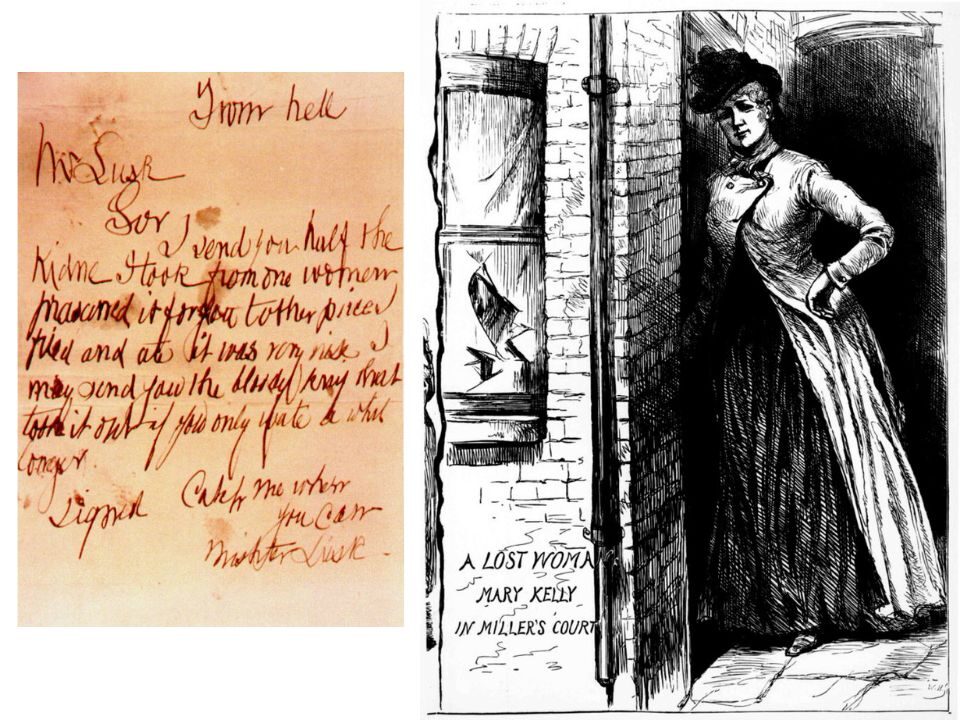 From hell
Mr Lusk
Sor
I send you half the
Kidne I took from one women
prasarved it for you tother piece I
fried and ate it was very nise I
may send you the bloody knif that
took it out if you only wate a whil
longer
signed Catch me when
you can
Mishter Lusk
A LOST WOMA
MARY KELLY
IN MILLER'S COURT